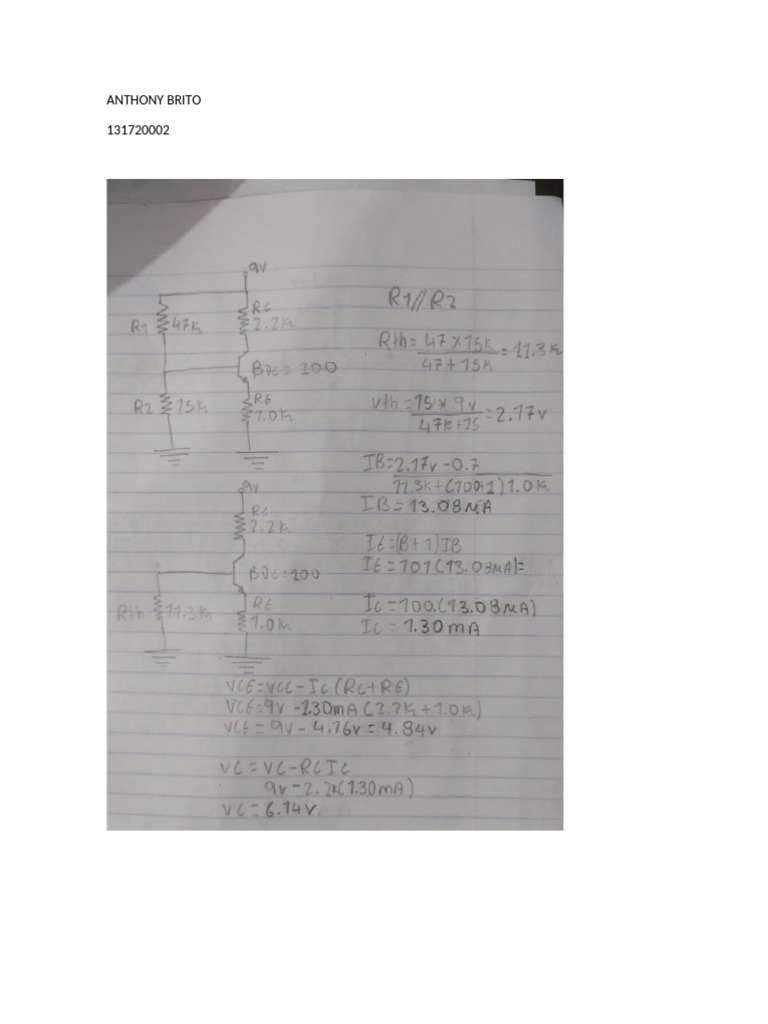 ANTHONY BRITO
131720002
9V
R1 47K
RC
2.2K
BDC = 100
R2 15K
RE
1.0K
R1//R2
Rth = 47 x 15K = 11.3K
47 + 15K
Vth = 15 x 9V = 2.17V
47K+15
IB = 2.17V - 0.7
11.3K + (100+1) 1.0K
IB = 13.08MA
IE = (B+1) IB
IE = 101 (13.08MA) =
IC = 100.(13.08MA)
IC = 1.30mA
9V
RC
2.2K
BDC = 100
Rth 11.3K
RE
1.0K
VCE = VCC - IC (RC+RE)
VCE = 9V - 1.30mA (2.2K + 1.0K)
VCE = 9V - 4.16V = 4.84V
VC = VC - RC IC
9V - 2.2K (1.30mA)
VC = 6.14V